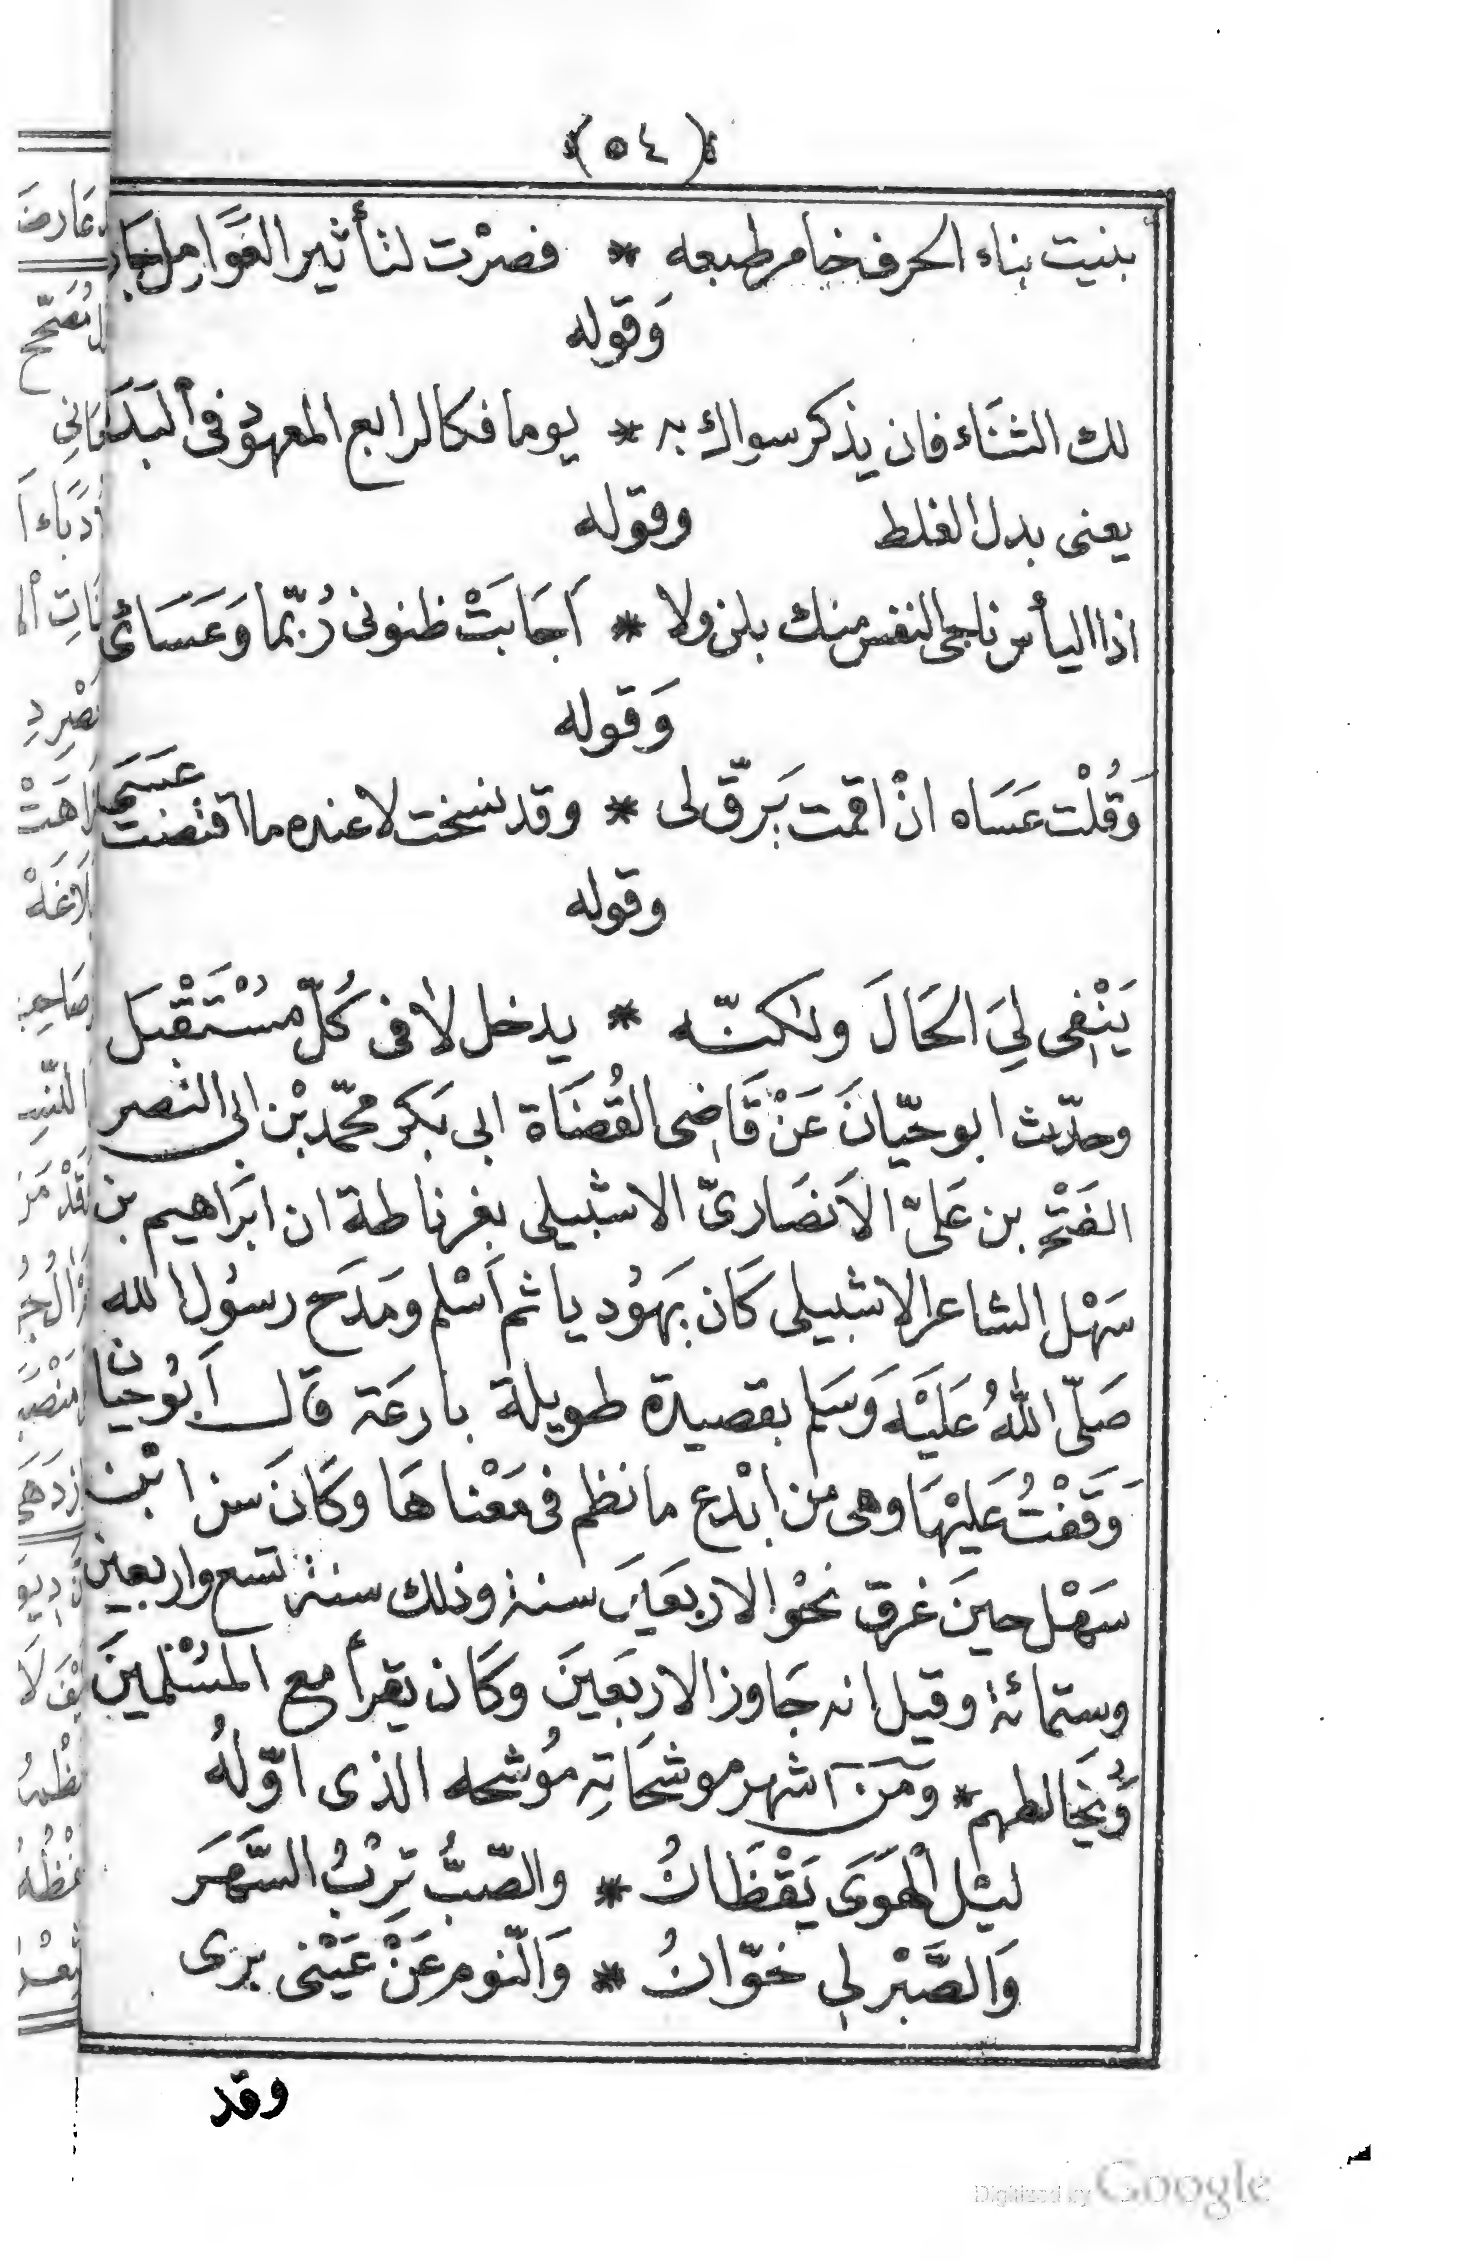 (٥٤)
بنيت بناء الحرف خامر طبعه * فصرْت لتأثير العَوَامِل جَا
وَقوله
لك الثنَاء فان يذكر سواك به * يوما فكالرابع المعهوْد فى ألبَدَ
يعنى بدل الغلط وقوله
اذا اليأس ناجى النفس منك بلن ولا * اَجَابَتْ ظنونى رُبّما وَعَسَائى
وَقوله
وَقُلْت عَسَاه انْ اقمت يَرقّ لى * وقد نسخت لا عنده ما اقتضت عَسَى
وقوله
يَنْفِى لِيَ الحَالَ ولكنّه * يدخل لا فى كُلّ مسْتَقْبَل
وحدّث ابو حيّانَ عَنْ قَاضِى القُضَاة ابى بَكر محمّد بْن ابى النصر
الفَتْح بن عَلىّ الاَنصَارىّ الاشبيلى بغرناطة ان ابَراهيم بن
سَهْل الشاعر الاشبيلى كَان يَهوُديا ثم اَسْلم ومَدَح رسوُل الله
صَلّى اللهُ عَلَيْه وَسَلم بقصيدة طويلة بارعَة قال اَبوُ حيّان
وَقَفْتُ عَليْهَا وهى من ابْدع ما نظم فى مَعْناهَا وكَانَ سن ابْن
سَهْل حينَ غرق نحْو الاربعَين سنة وذلك سنة تسع واربعين
وستمائة وقيل انه جَاوز الاربَعينَ وكَان يقرأ مع المسْلمينَ
وُيخَالطهم * ومَن اشهر موشحَاتِه موُشحه الذى اوّلهُ
ليْل ألهَوَى يَقْظَانُ * والصّبُّ تِرْبُ السَّهَر
وَالصَّبْر لِى خوّانُ * وَالنّوم عَنْ عَيْنى برى
وقد
Digitized by Google